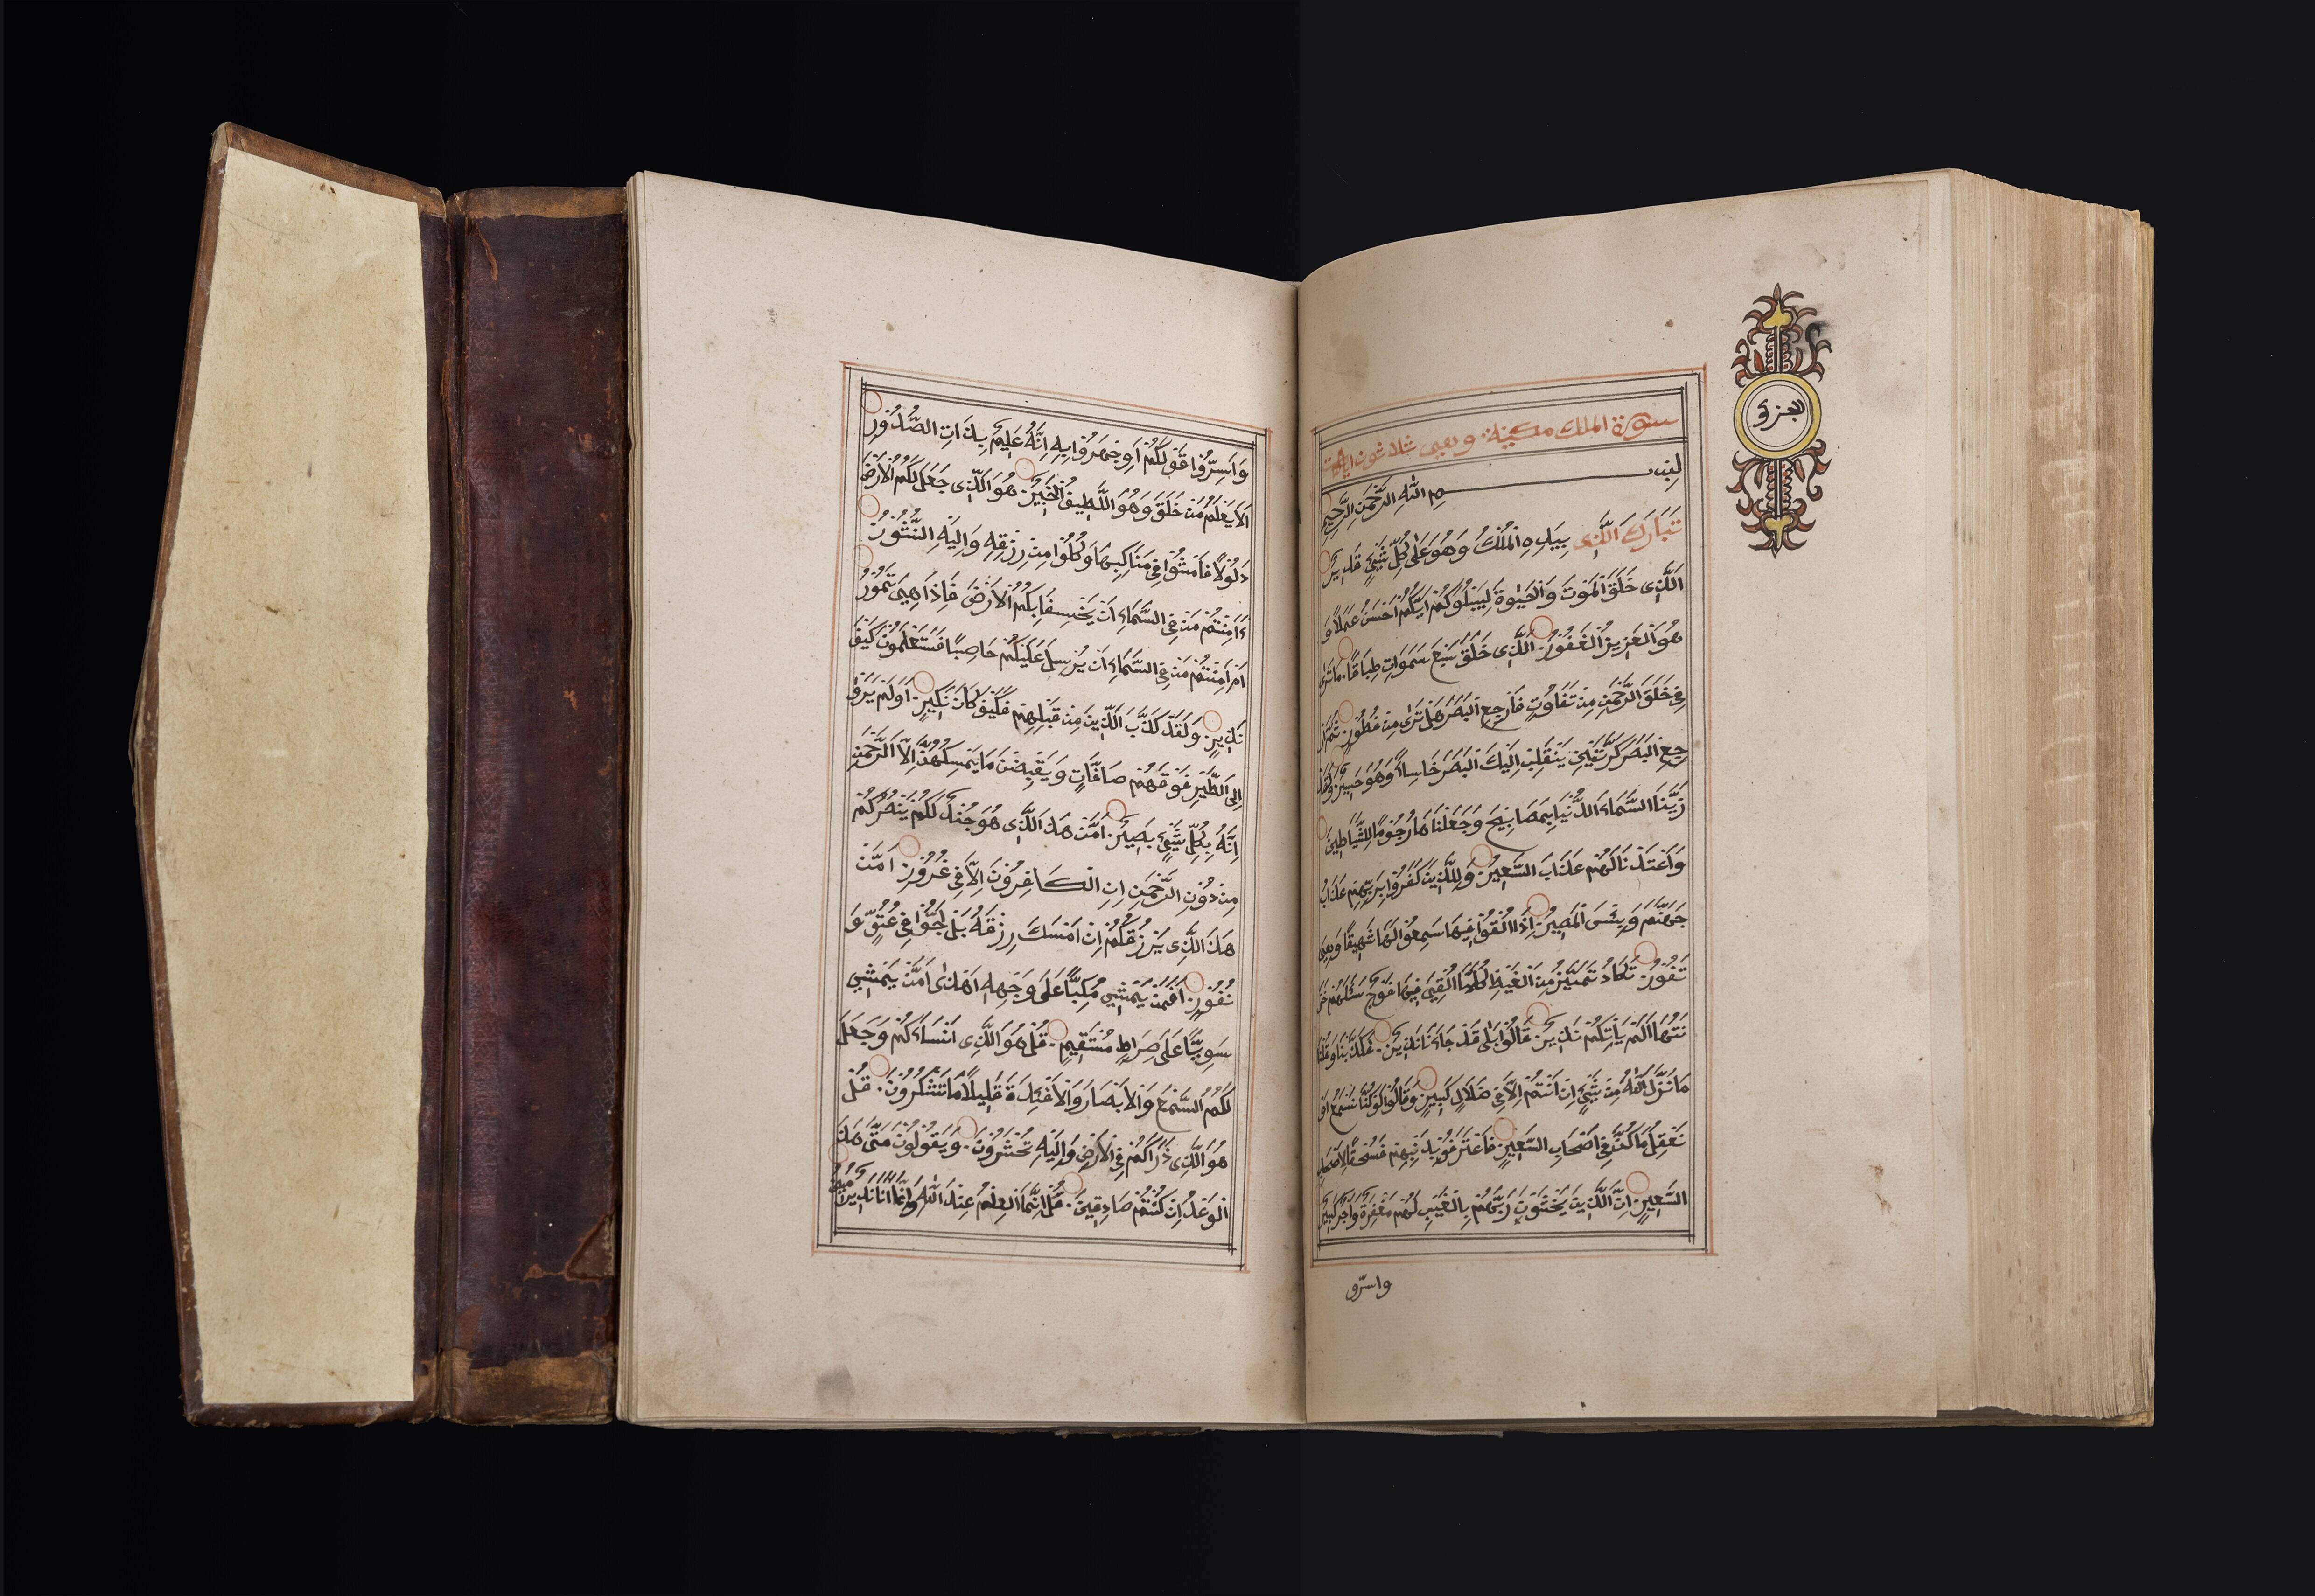 سورة الملك مكية وهى ثلاثون اية
بسم الله الرحمن الرحيم
الجزؤ
تَبَارَكَ الَّذِى بِيَدِهِ الْمُلْكُ وَهُوَ عَلٰى كُلِّ شَيْئٍ قَدِيرٌ
الَّذِى خَلَقَ الْمَوْتَ وَالْحَيٰوةَ لِيَبْلُوَكُمْ اَيُّكُمْ اَحْسَنُ عَمَلًا وَ
هُوَ الْعَزِيزُ الْغَفُوْرُ الَّذِى خَلَقَ سَبْعَ سَمَوَاتٍ طِبَاقًا مَا تَرٰى
فِى خَلْقِ الرَّحْمَنِ مِنْ تَفَاوُتٍ فَارْجِعِ الْبَصَرَ هَلْ تَرٰى مِنْ فُطُوْرٍ ثُمَّ ار
جِعِ الْبَصَرَ كَرَّتَيْنِ يَنْقَلِبْ اِلَيْكَ الْبَصَرُ خَاسِأً وَهُوَ حَسِيرٌ وَلَقَدْ
زَيَّنَّا السَّمَاءَ الدُّنْيَا بِمَصَابِيْحَ وَجَعَلْنَاهَا رُجُوْمًا لِلشَّيَاطِيْنَ
وَاَعْتَدْنَا لَهُمْ عَذَابَ السَّعِيرِ وَلِلَّذِينَ كَفَرُوْا بِرَبِّهِمْ عَذَابُ
جَهَنَّمَ وَبِئْسَ الْمَصِيرُ اِذَا اُلْقُوْا فِيهَا سَمِعُوْا لَهَا شَهِيقًا وَهِىَ
تَفُوْرُ تَكَادُ تَمَيَّزُ مِنَ الْغَيْظِ كُلَّمَا اُلْقِىَ فِيْهَا فَوْجٌ سَئَلَهُمْ خَزَ
نَتُهَا اَلَمْ يَاْتِكُمْ نَذِيرٌ قَالُوْا بَلٰى قَدْ جَاءَنَا نَذِيرٌ فَكَذَّبْنَا وَقُلْنَا
مَا نَزَّلَ اللّٰهُ مِنْ شَيْئٍ اِنْ اَنْتُمْ اِلَّا فِى ضَلَالٍ كَبِيرٍ وَقَالُوْا لَوْ كُنَّا نَسْمَعُ اَوْ
نَعْقِلُ مَا كُنَّا فِى اَصْحَابِ السَّعِيرِ فَاعْتَرَفُوْا بِذَنْبِهِمْ فَسُحْقًا لِاَصْحَابِ
السَّعِيرِ اِنَّ الَّذِينَ يَخْشَوْنَ رَبَّهُمْ بِالْغَيْبِ لَهُمْ مَغْفِرَةٌ وَاَجْرٌ كَبِيرٌ
واسرّو
وَاَسِرُّوْا قَوْلَكُمْ اَوِ جْهَرُوْا بِهِ اِنَّهُ عَلِيمٌ بِذَاتِ الصُّدُوْرِ
اَلَا يَعْلَمُ مَنْ خَلَقَ وَهُوَ اللَّطِيفُ الْخَبِيرُ هُوَ الَّذِى جَعَلَ لَكُمُ الْاَرْضَ
ذَلُوْلًا فَامْشُوْا فِى مَنَاكِبِهَا وَكُلُوْا مِنْ رِزْقِهِ وَاِلَيْهِ النُّشُوْرُ
ءَاَمِنْتُمْ مَنْ فِى السَّمَاءِ اَنْ يَخْسِفَ بِكُمُ الْاَرْضَ فَاِذَا هِىَ تَمُوْرُ
اَمْ اَمِنْتُمْ مَنْ فِى السَّمَاءِ اَنْ يُرْسِلَ عَلَيْكُمْ حَاصِبًا فَسَتَعْلَمُوْنَ كَيْفَ
نَذِيرِ وَلَقَدْ كَذَّبَ الَّذِينَ مِنْ قَبْلِهِمْ فَكَيْفَ كَانَ نَكِيرِ اَوَلَمْ يَرَوْا
اِلَى الطَّيْرِ فَوْقَهُمْ صَافَّاتٍ وَيَقْبِضْنَ مَا يُمْسِكُهُنَّ اِلَّا الرَّحْمَنُ
اِنَّهُ بِكُلِّ شَيْئٍ بَصِيرٌ اَمَّنْ هَذَا الَّذِى هُوَ جُنْدٌ لَكُمْ يَنْصُرُكُمْ
مِنْ دُوْنِ الرَّحْمَنِ اِنِ الْكَافِرُوْنَ اِلَّا فِى غُرُوْرٍ اَمَّنْ
هَذَا الَّذِى يَرْزُقُكُمْ اِنْ اَمْسَكَ رِزْقَهُ بَلْ لَجُّوْا فِى عُتُوٍّ وَ
نُفُوْرٍ اَفَمَنْ يَمْشِى مُكِبًّا عَلَى وَجْهِهِ اَهْدٰى اَمَّنْ يَمْشِى
سَوِيًّا عَلَى صِرَاطٍ مُسْتَقِيمٍ قُلْ هُوَ الَّذِى اَنْشَاَكُمْ وَجَعَلَ
لَكُمُ السَّمْعَ وَالْاَبْصَارَ وَالْاَفْئِدَةَ قَلِيلًا مَا تَشْكُرُوْنَ قُلْ
هُوَ الَّذِى ذَرَاَكُمْ فِى الْاَرْضِ وَاِلَيْهِ تُحْشَرُوْنَ وَيَقُوْلُوْنَ مَتٰى هَذَا
الْوَعْدُ اِنْ كُنْتُمْ صَادِقِينَ قُلْ اِنَّمَا الْعِلْمُ عِنْدَ اللّٰهِ وَاِنَّمَا اَنَا نَذِيرٌ مُبِينٌ